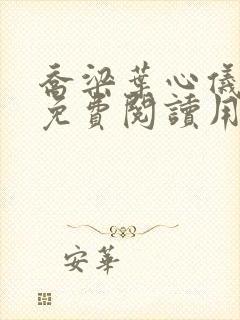 喬梁葉心儀
免費閱讀用
安華